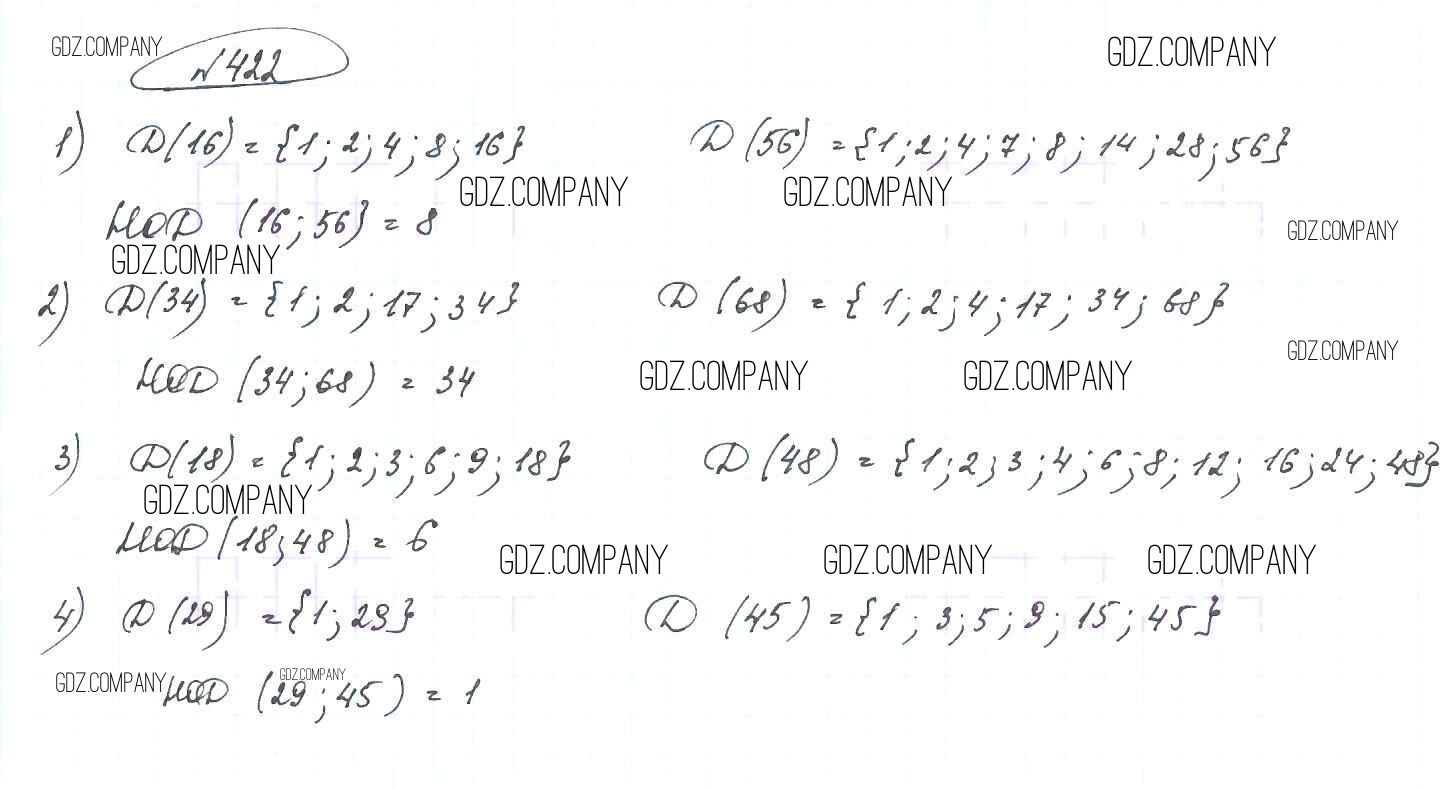 GDZ.COMPANY
№422
GDZ.COMPANY
1) D(16) = {1; 2; 4; 8; 16} D (56) = {1; 2; 4; 7; 8; 14; 28; 56}
GDZ.COMPANY GDZ.COMPANY
НОD (16; 56} = 8
GDZ.COMPANY
GDZ.COMPANY
2) D(34) = {1; 2; 17; 34} D (68) = { 1; 2; 4; 17; 34; 68}
GDZ.COMPANY
НОD (34; 68) = 34
GDZ.COMPANY GDZ.COMPANY
3) D(18) = {1; 2; 3; 6; 9; 18} D (48) = {1; 2; 3; 4; 6; 8; 12; 16; 24; 48}
GDZ.COMPANY
НОD (18; 48) = 6
GDZ.COMPANY GDZ.COMPANY GDZ.COMPANY
4) D (29) = {1; 29} D (45) = {1; 3; 5; 9; 15; 45}
GDZ.COMPANY GDZ.COMPANY
НОD (29; 45) = 1